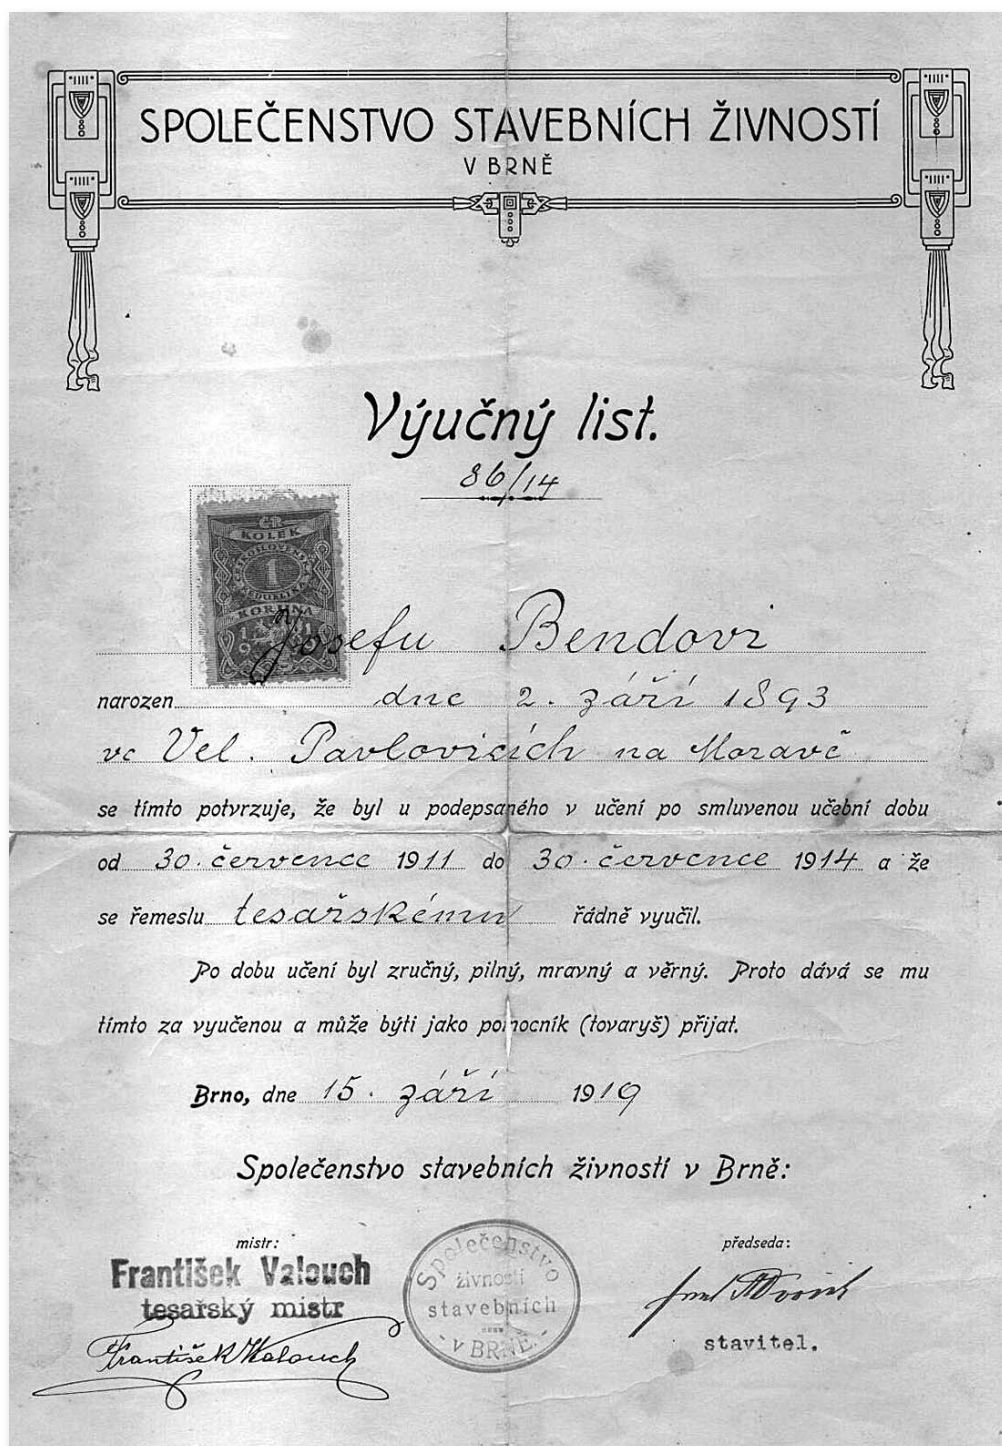 SPOLEČENSTVO STAVEBNÍCH ŽIVNOSTÍ
V BRNĚ
Výučný list.
86/14
ČR
KOLEK
ČESKOSLOVENSKÁ
1
REPUBLIKA
KORUNA
Josefu Bendovi
narozen dne 2. září 1893
ve Vel. Pavlovicích na Moravě
se tímto potvrzuje, že byl u podepsaného v učení po smluvenou učební dobu
od 30. července 1911 do 30. července 1914 a že
se řemeslu tesařskému řádně vyučil.
Po dobu učení byl zručný, pilný, mravný a věrný. Proto dává se mu
tímto za vyučenou a může býti jako pomocník (tovaryš) přijat.
Brno, dne 15. září 1919
Společenstvo stavebních živností v Brně:
mistr:
František Valouch
tesařský mistr
František Valouch
Společenstvo
živností
stavebních
V BRNĚ
předseda:
stavitel.